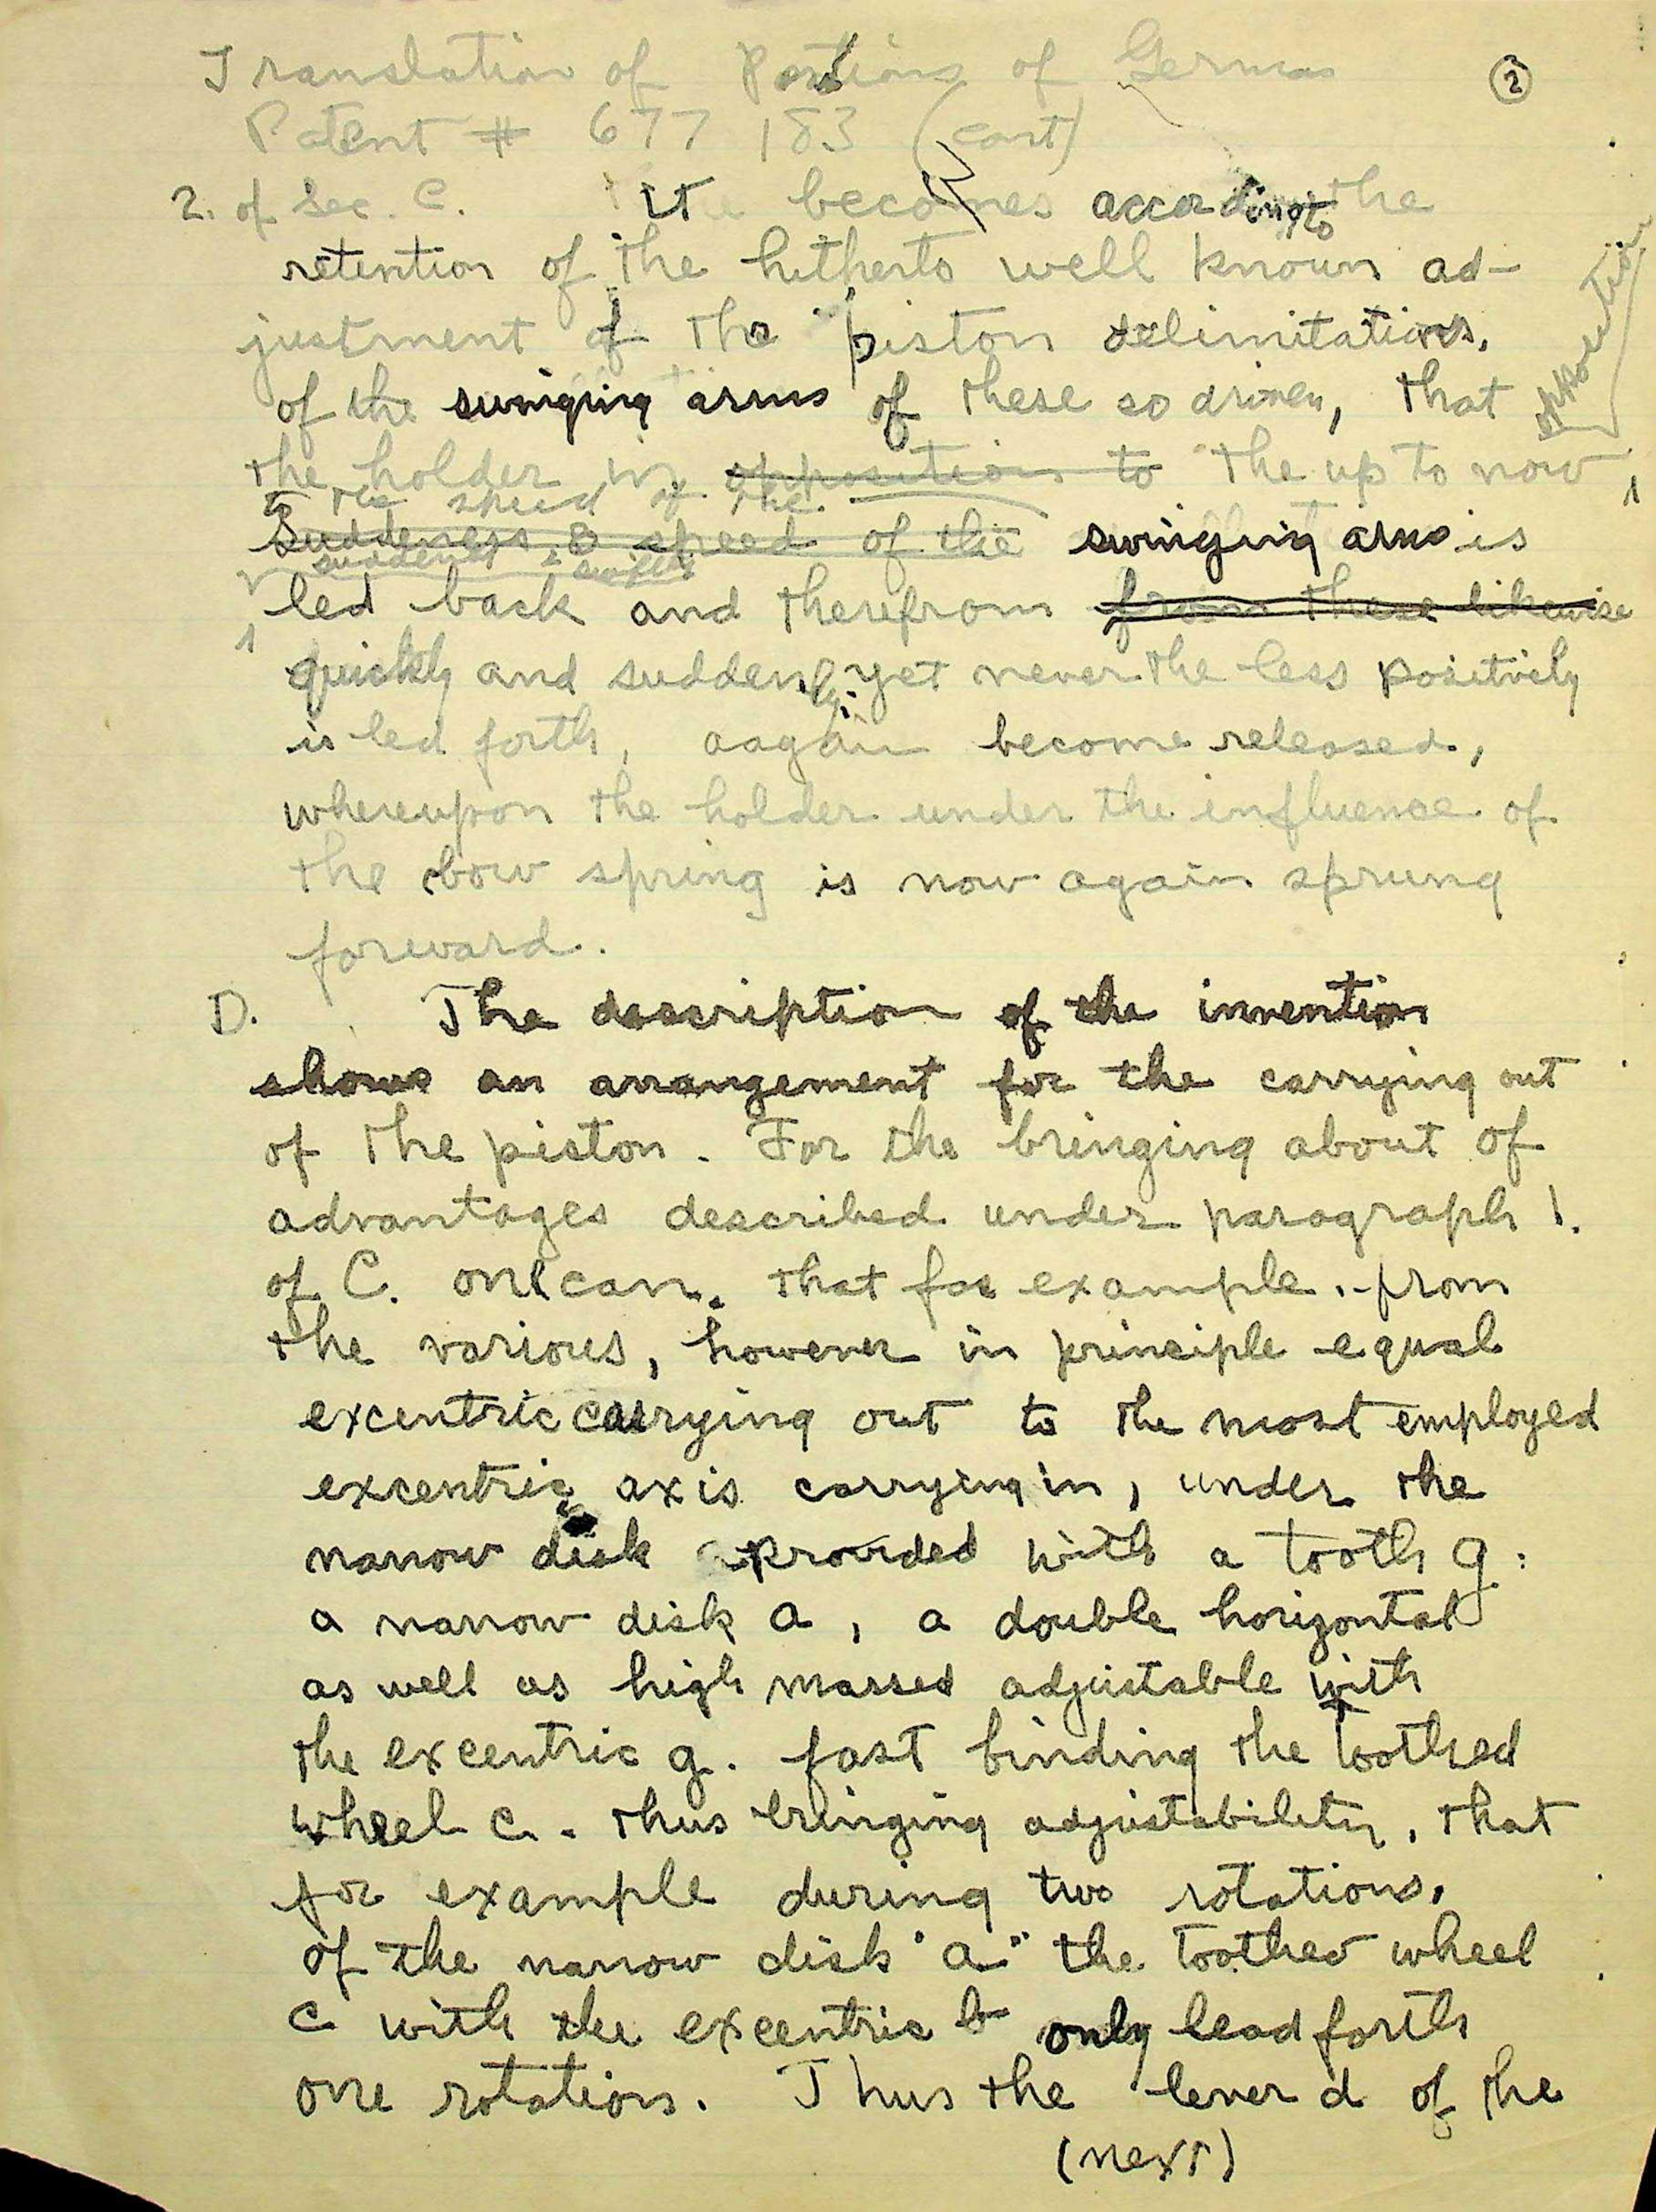 Translation of Portions of German
②
Patent # 677 183 (cont)
2. of Sec. C. It becomes according to the
retention of the hitherto well known ad-
justment of the piston delimitations,
of the swinging arms of these so driven, that
opposition
the holder in opposition to the up to now
to the speed of the
Suddeness & speed of the swinging arms is
sudden & swift
led back and therefrom from these likewise
quickly and suddenly, yet never the less positively
is led forth, aagain become released,
whereupon the holder under the influence of
the bow spring is now again sprung
forward.
D. The description of the invention
shows an arrangement for the carrying out
of the piston. For the bringing about of
advantages described under paragraph 1.
of C. one can, that for example, from
the various, however in principle equal
excentric carrying out to the most employed
excentric axis carrying in, under the
narrow disk a provided with a tooth g:
a narrow disk a, a double horizontal
as well as high massed adjustable with
the excentric g. fast binding the toothed
wheel c. thus bringing adjustability, that
for example during two rotations,
of the narrow disk "a" the toothed wheel
c with the excentric b only lead forth
one rotation. Thus the lever d of the
(next)